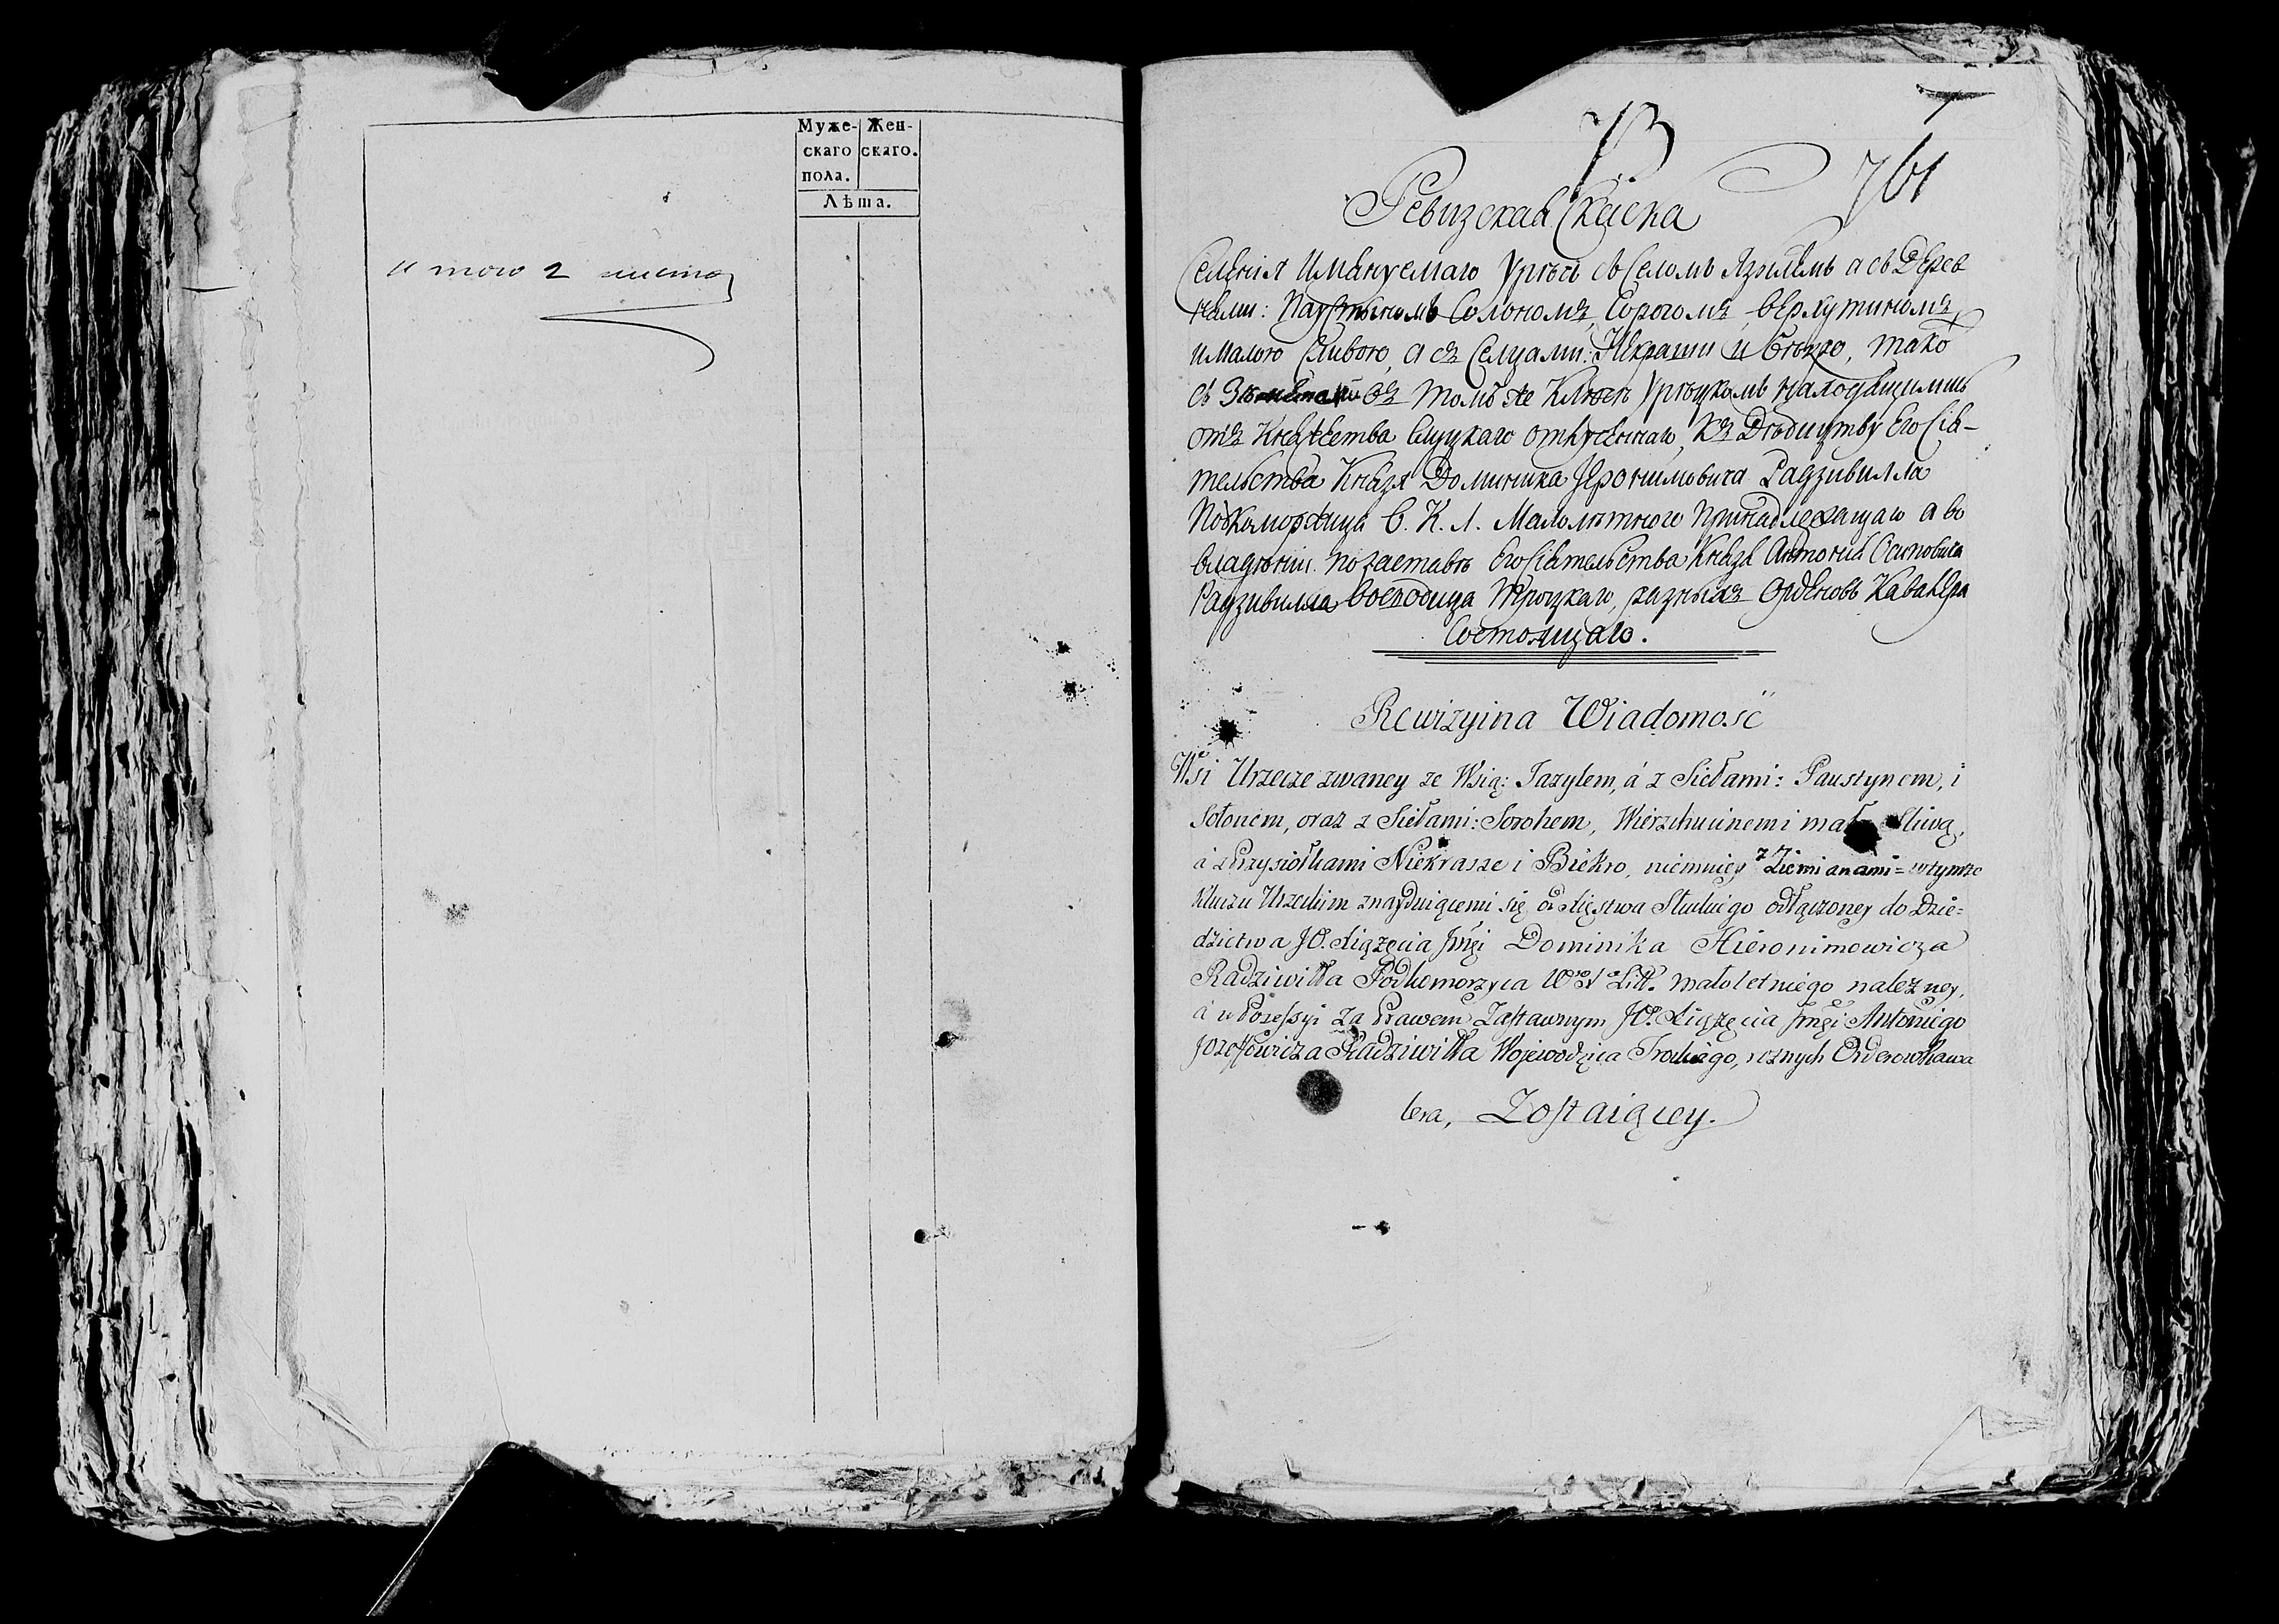 Муже- Жен-
скаго скаго.
пола.
Лѣта.
итого 2 листа
73
761
Ревизская Скаска
Селенiя Именуемаго Урѣчь съ Селомъ Языльмъ а съ Дерев
нями: Паустыномъ Солономъ, Сорогомъ, Верхутиномъ
и Малою Сливою, а съ Селцами: Некраши и Бѣкро, тако
съ Земянами въ томъ же Ключѣ Урѣцкомъ находящимись
отъ Княжества Слуцкаго отлученнаго, къ Дѣдицтву Его Сiя-
тельства Князя Доминика Iеронимовича Радзивилла
Подкоморжица В. К. Л. Малолѣтнего принадлежащаго а во
владѣнiи по заставѣ Его Сiятельства Князя Антонiя Осиповича
Радзивилла Воеводица Троцкаго, разныхъ Орденовъ Кавалера
Состоящаго.
Rewizyina Wiadomość
Wsi Urzecze zwaney ze Wsią: Jazylem, á z Siełami: Paustynem, i
Sołonem, oraz z Siełami: Sorohem, Wierzchucinem i mał Sliwą,
á z Przysiołkami Niekrasze i Biekro, niemniey z Ziemianami w tymże
Kluczu Urzeckim znayduiącemi się od Xięstwa Słuckiego odłączoney do Dzie=
dzictwa JO. Xiążęcia Jmći Dominika Hieronimowicza
Radziwiłła Podkomorzyca Wgo Xa Litt. małoletniego należney,
á w Possessyi za Prawem Zastawnym JO. Xiążęcia Jmći Antoniego
Jozeffowicza Radziwiłła Wojewodzica Trockiego, rożnych Orderow Kawa
lera, Zostaiącey.